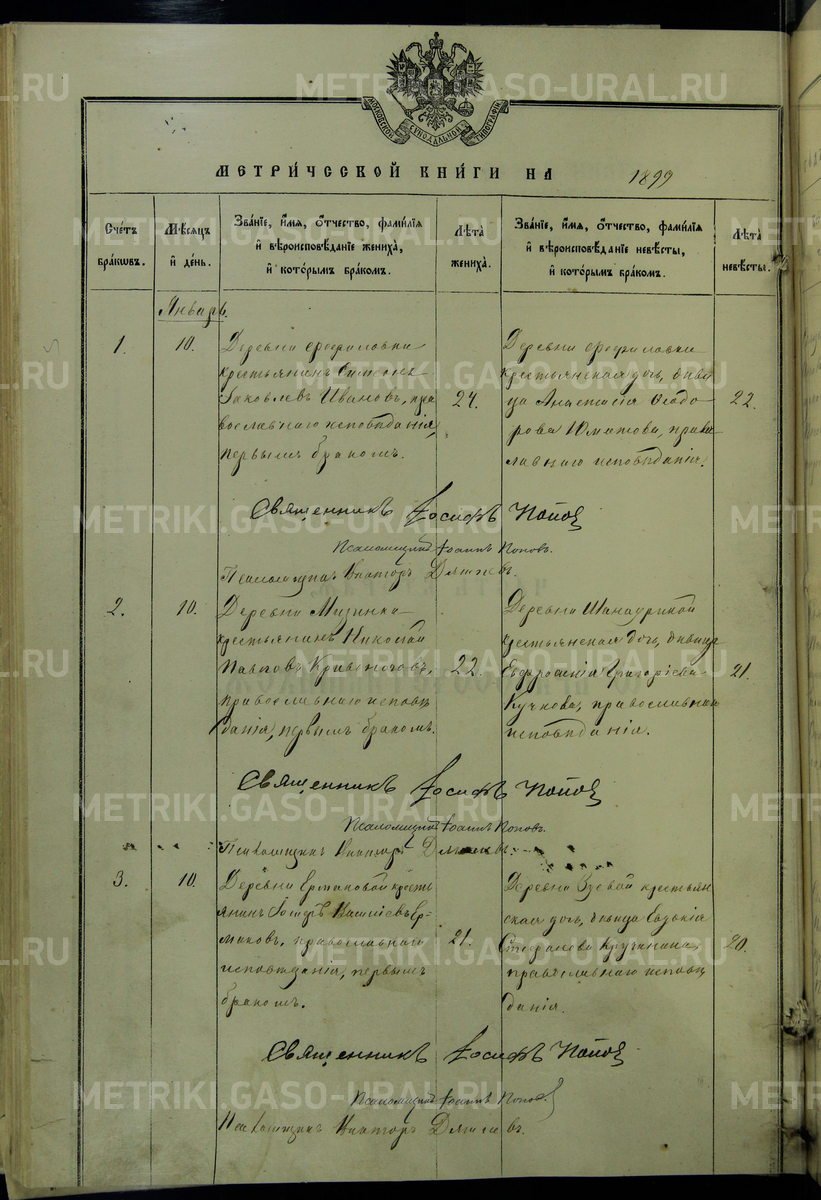 МОСКОВСКОЙ СѴНОДАЛЬНОЙ ТИПОГРАФІИ
МЕТРИ́ЧЕСКОЙ КНИ́ГИ НА 1899
Сче́тъ бра́кωвъ.
Мѣ́сяцъ и҆ де́нь.
Зва́нїе, и҆́мя, ѻ҆́тчество, фами́лїя и҆ вѣроисповѣ́данїе жениха̀, и҆ кото́рымъ бра́комъ.
Лѣ́та жениха̀.
Зва́нїе, и҆́мя, ѻ҆́тчество, фами́лїя и҆ вѣроисповѣ́данїе невѣ́сты, и҆ кото́рымъ бра́комъ.
Лѣ́та невѣ́сты.
Январь.
1.
10.
Деревни
крестьянинъ
Іаковлевъ Ивановъ, пра
вославнаго исповѣданія,
первымъ бракомъ.
24.
Деревни
крестьянская дочь, дѣви
ца Анастасія Ѳеодо
рова православ
лавнаго исповѣданія.
22.
Священникъ Іосифъ Попов
Псаломщикъ Іоаннъ Поповъ.
Псаломщикъ Викторъ
2.
10.
Деревни
крестьянинъ Николай
Павловъ Кривоноговъ,
православнаго исповѣ
данія, первымъ бракомъ.
22.
Деревни
крестьянская дочь, дѣвица
Евфросинія Григоріева
Кучкова, православнаго
исповѣданія.
21.
Священникъ Іосифъ Попов
Псаломщикъ Іоаннъ Поповъ.
Псаломщикъ Викторъ
3.
10.
Деревни Ермаковой кресть
янинъ Іосифъ Ер-
маковъ, православнаго
исповѣданія, первымъ
бракомъ.
21.
Деревни Зуевой крестьян
ская дочь, дѣвица Евдокія
Стефанова
православнаго исповѣ
данія.
20.
Священникъ Іосифъ Попов
Псаломщикъ Іоаннъ Поповъ
Псаломщикъ Викторъ
METRIKI.GASO-URAL.RU